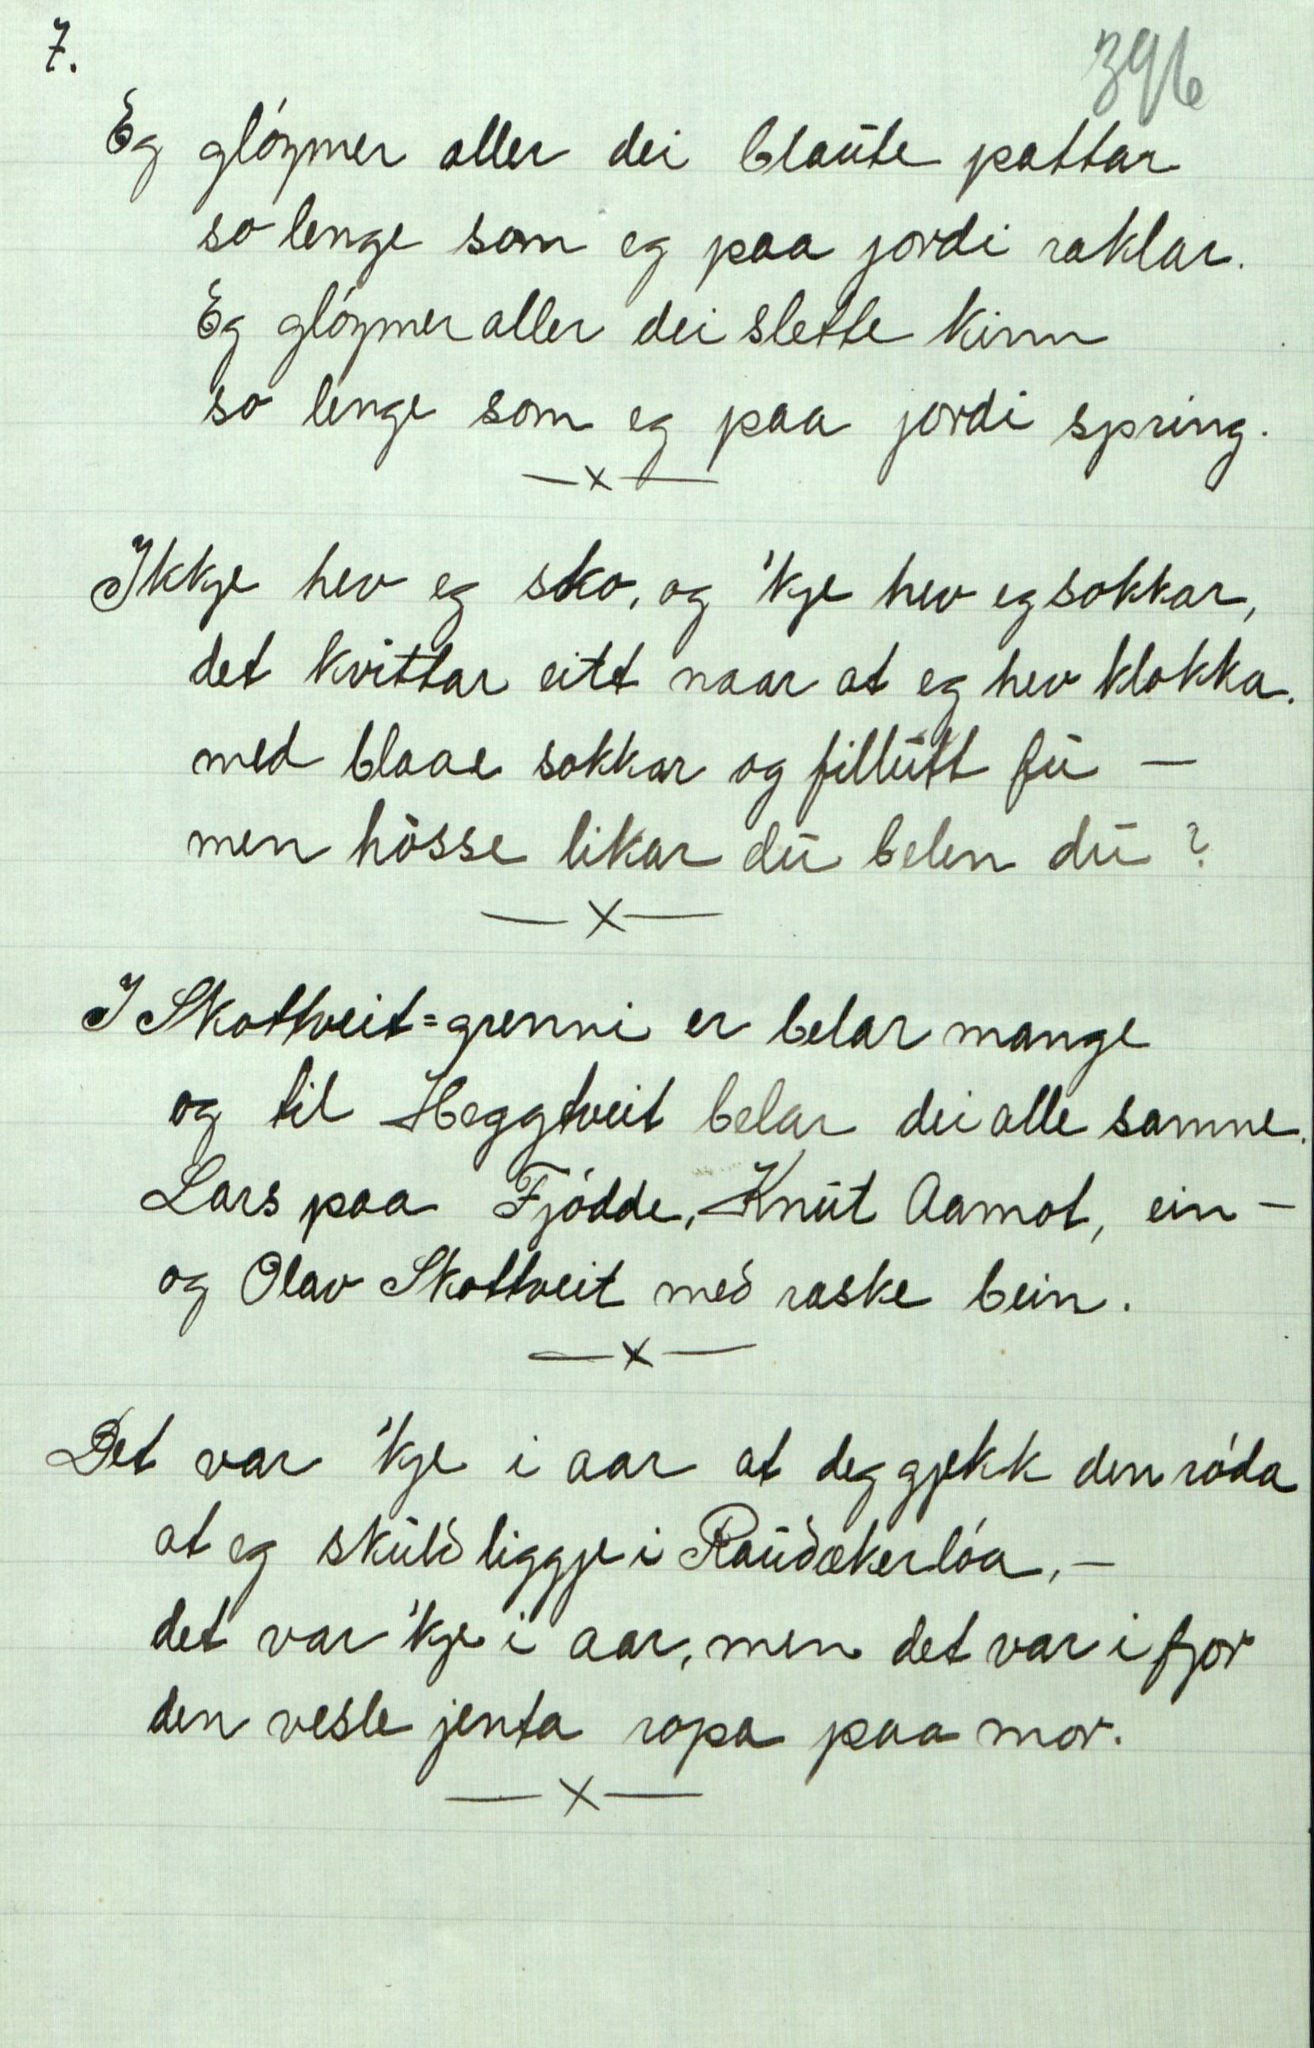 7.
396
Eg gløymer aller dei blaute pattar
so lenge som eg paa jordi raklar.
Eg gløymer aller dei slette kinn
so lenge som eg paa jordi spring.
—x—
Ikkje hev eg sko, og 'kje hev eg sokkar,
det kvittar eitt naar at eg hev klokka.
med blaae sokkar og fillutt fu —
men hòsse likar du belen du?
—x—
I Skottveit=grenni er belar mange
og til Heggtveit belar dei alle samne.
Lars paa Fjødde, Knut Aamot, ein —
og Olav Skottveit með raske bein.
—x—
Det var 'kje i aar at deg gjekk den røda
at eg skulð liggje i Rauðækerløa, —
det var 'kje i aar, men det var i fjor
den vesle jenta ropa paa mor.
—x—